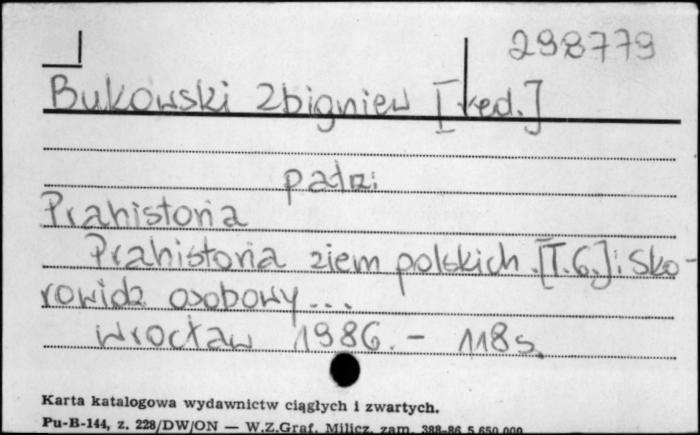 298779
Bukowski Zbigniew [red.]
patrz:
Prahistoria
Prahistoria ziem polskich. [T.6.]: Sko-
rowidz osobowy...
Wrocław 1986. - 118 s.
Karta katalogowa wydawnictw ciągłych i zwartych.
Pu-B-144, z. 228/DW/ON — W.Z.Graf. Milicz, zam. 388-86 5 650 000